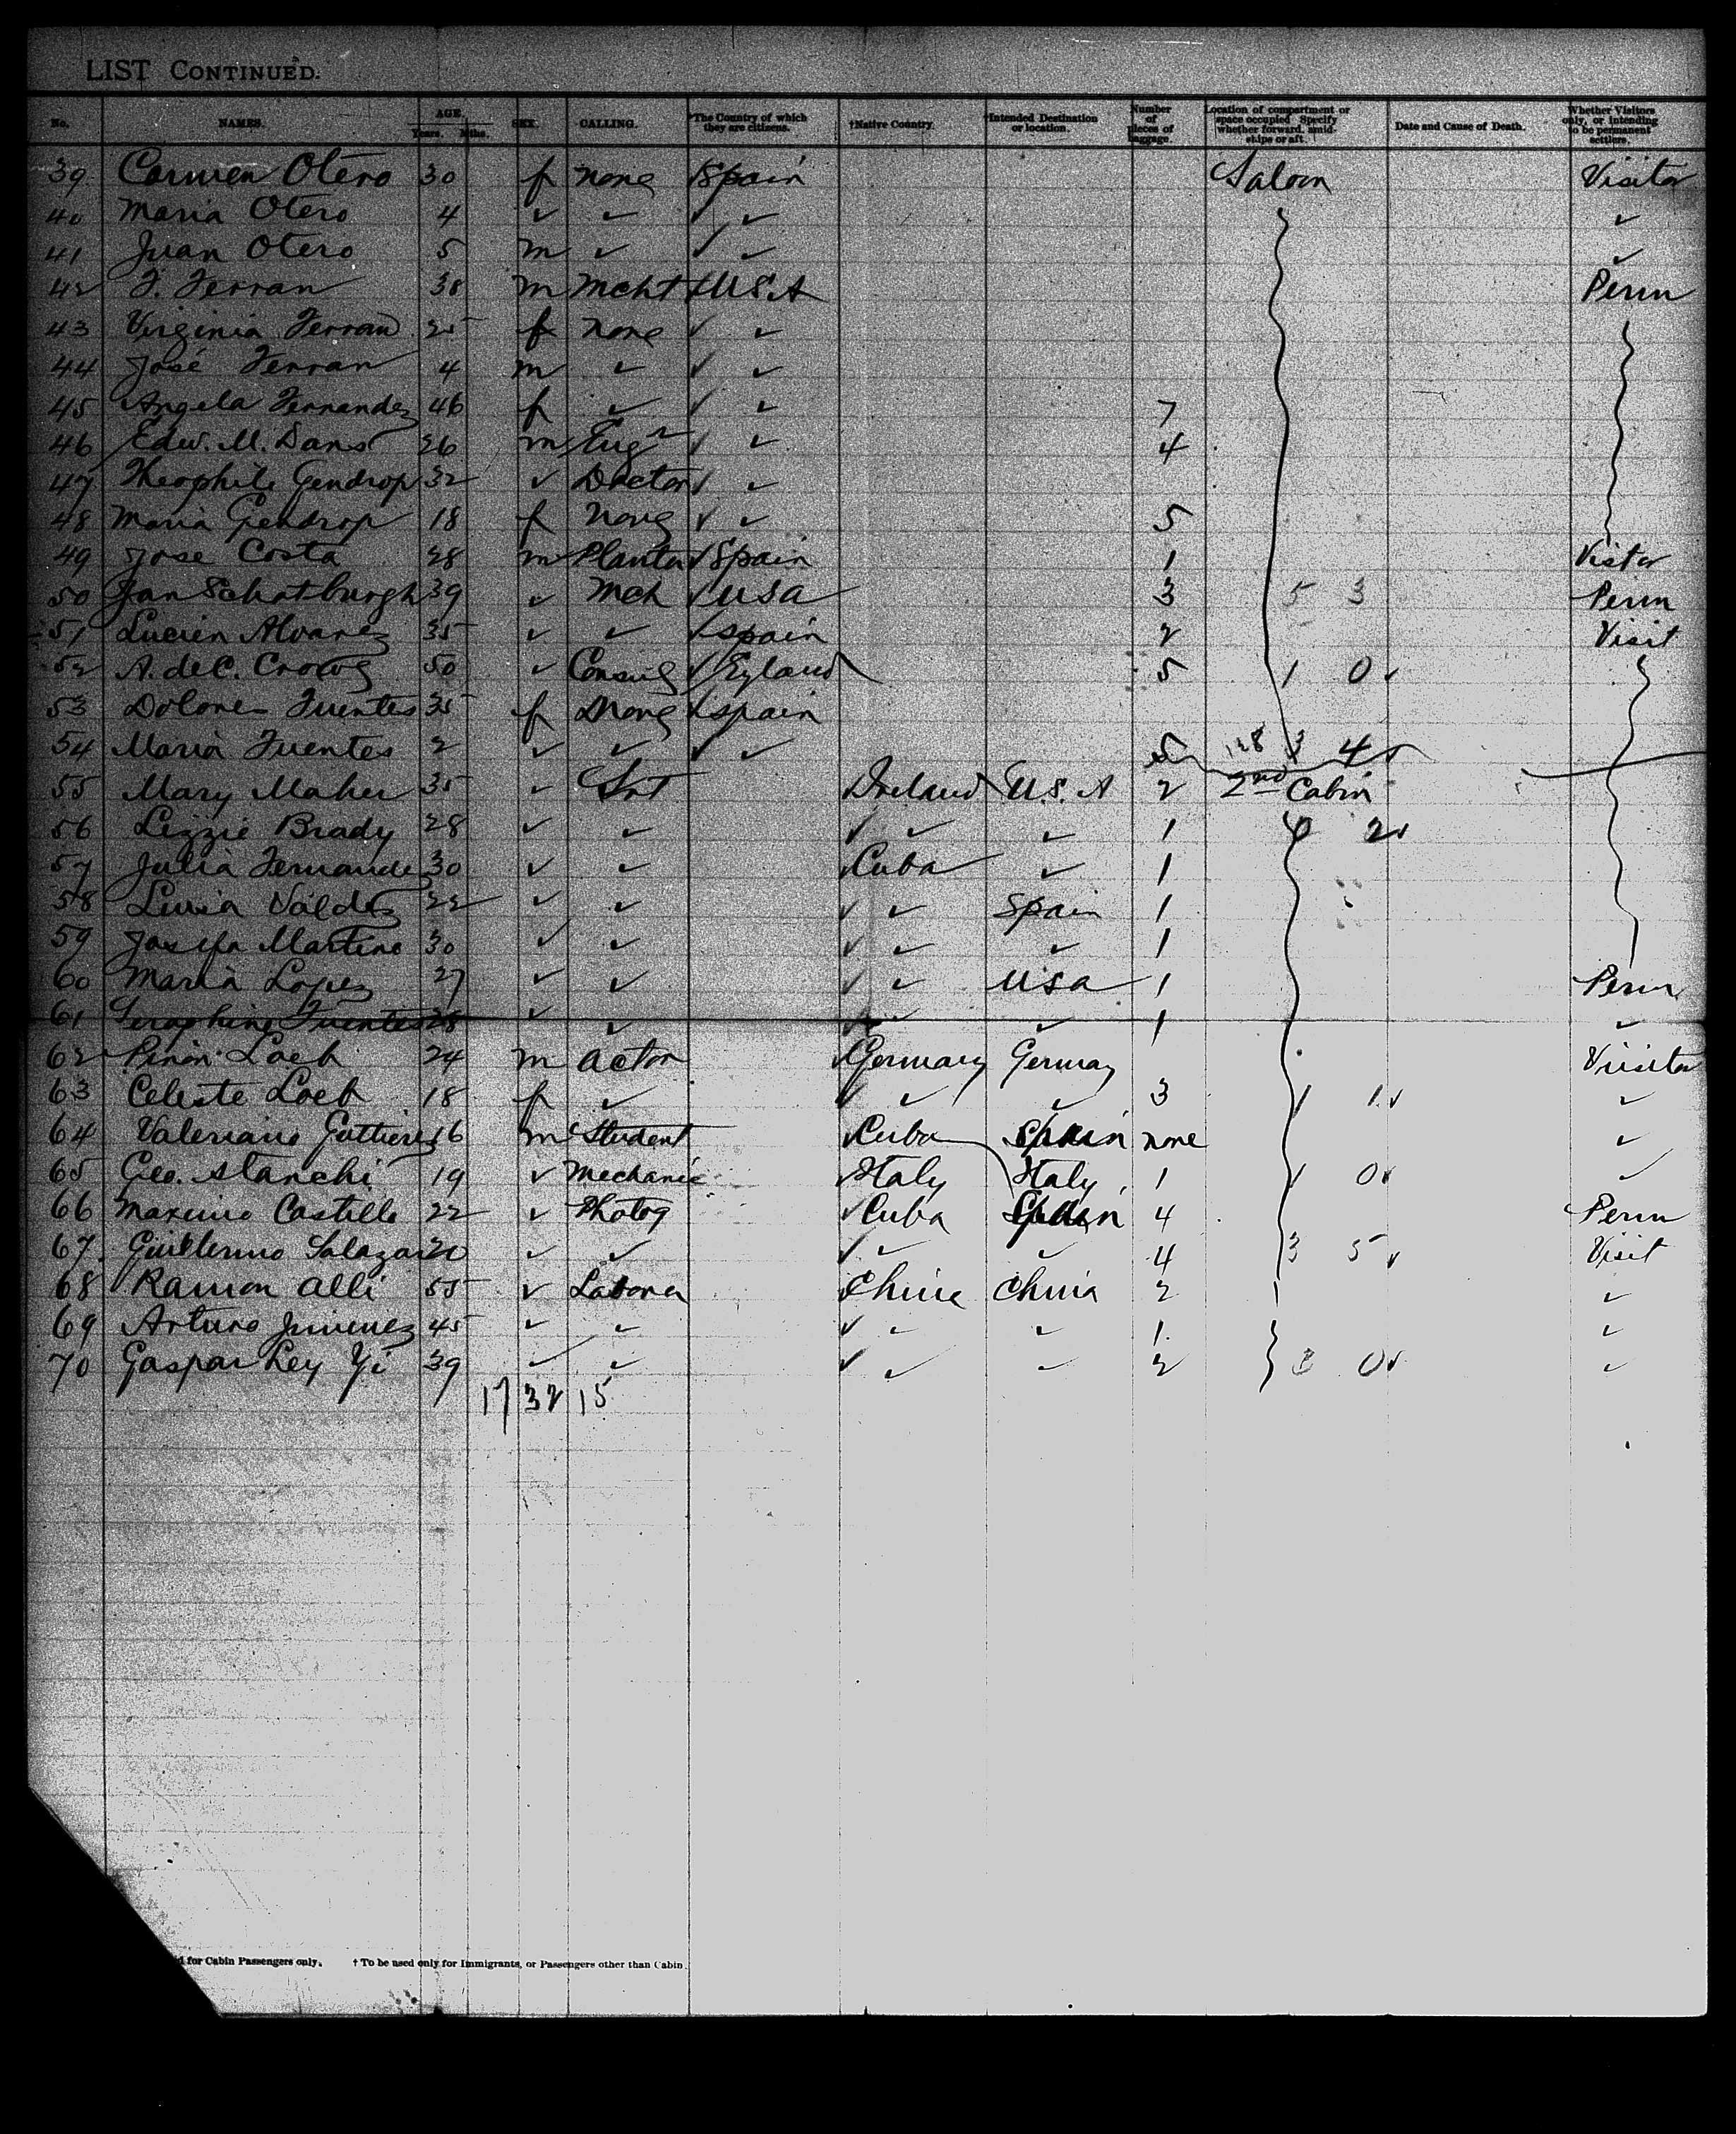 LIST CONTINUED.
No. NAMES. AGE. Years. Mths. SEX. CALLING. *The Country of which they are citizens. †Native Country. †Intended Destination or location. Number of pieces of baggage. Location of compartment or space occupied Specify whether forward, amidships or aft. Date and Cause of Death. Whether Visitors only, or intending to be permanent settlers.
39 Carmen Otero 30 f none Spain Saloon Visitor
40 Maria Otero 4 ✓ ✓ ✓ ✓ ✓
41 Juan Otero 5 m ✓ ✓ ✓ ✓
42 F. Ferran 38 m Mcht ✓ U.S.A Perm
43 Virginia Ferran 25 f none ✓ ✓
44 José Ferran 4 m ✓ ✓ ✓
45 Angela Fernandez 46 f ✓ ✓ ✓ 7
46 Edw. M. Danis 26 m Eng r ✓ ✓ 4
47 Theophile Gendrop 32 ✓ Doctor ✓ ✓
48 Maria Gendrop 18 f None ✓ ✓ 5
49 Jose Costa 28 m Planter ✓ Spain 1 Vistor
50 Jan Schatburgh 39 ✓ Mch ✓ USA 3 5 3 Perm
51 Lucien Alvarez 35 ✓ ✓ ✓ Spain 2 Visit
52 A. de C. Crowe 50 ✓ Consul ✓ England 5 1 0 ✓
53 Dolores Fuentes 35 f None ✓ Spain
54 Maria Fuentes 2 ✓ ✓ ✓ ✓ 5 138 3 4 ✓
55 Mary Maher 35 ✓ Svt Ireland U.S.A 2 2nd Cabin
56 Lizzie Brady 28 ✓ ✓ ✓ ✓ ✓ 1 0 2 ✓
57 Julia Fernandez 30 ✓ ✓ ✓ Cuba ✓ 1
58 Luisa Valdez 22 ✓ ✓ ✓ ✓ Spain 1
59 Josefa Martine 30 ✓ ✓ ✓ ✓ ✓ 1
60 Maria Lopez 27 ✓ ✓ ✓ ✓ USA 1 Perm
61 Seraphine Fuentes 28 ✓ ✓ ✓ ✓ ✓ 1 ✓
62 Loeb 24 m Actor ✓ Germany Germay Visitor
63 Celeste Loeb 18 f ✓ ✓ ✓ ✓ 3 1 1 ✓ ✓
64 Valeriano Guttierez 16 m Student ✓ Cuba Spain none ✓
65 Geo. Stanchi 19 ✓ Mechanic ✓ Italy Italy 1 1 0 ✓ ✓
66 Maximo Castillo 22 ✓ Photog ✓ Cuba Spain 4 Perm
67 Guillermo Salazar 20 ✓ ✓ ✓ ✓ ✓ 4 3 5 ✓ Visit
68 Ramon Alli 55 ✓ Laborer ✓ China China 2 ✓
69 Arturo Jiminez 45 ✓ ✓ ✓ ✓ ✓ 1 ✓
70 Gaspar Ley Yi 39 ✓ ✓ ✓ ✓ ✓ 2 3 0 ✓ ✓
17 32 15
d for Cabin Passengers only. † To be used only for Immigrants, or Passengers other than Cabin.